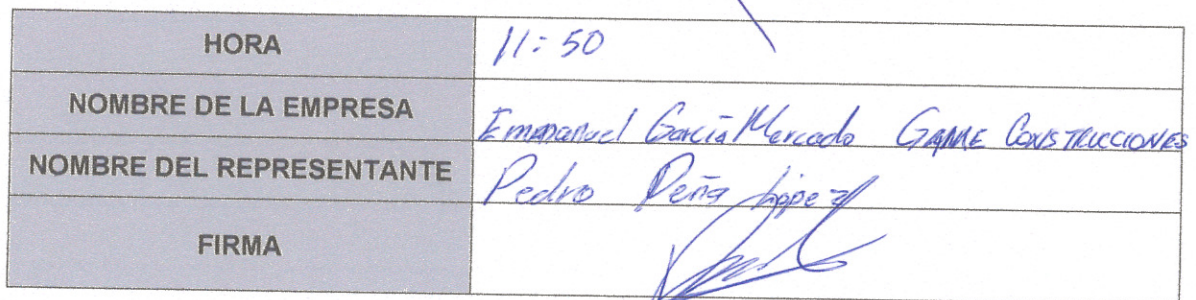 HORA 11:50
NOMBRE DE LA EMPRESA Emmanuel García Mercado GAMME CONSTRUCCIONES
NOMBRE DEL REPRESENTANTE Pedro Peña López
FIRMA